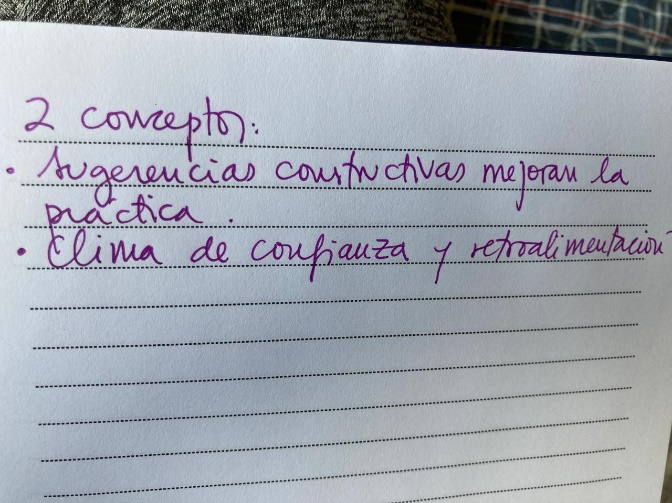 2 conceptos:
• Sugerencias constructivas mejoran la
práctica.
• Clima de confianza y retroalimentación